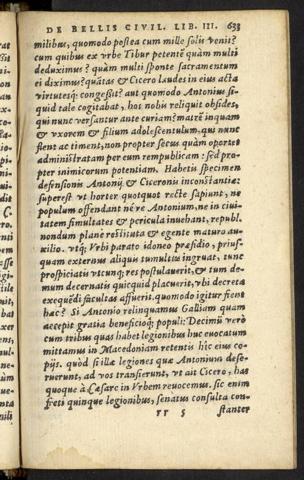 DE BELLIS CIVIL. LIB. III. 633
milibus, quomodo postea cum mille solis venit?
cum quibus ex vrbe Tibur petente quàm multi
deduximus? quàm multi sponte sacramentum
ei diximus? quātas & Cicero laudes in eius acta
virtutesq; congessit? aut quomodo Antonius si-
quid tale cogitabat, hos nobis reliquit obsides,
qui nunc versantur ante curiam? matrē inquam
& vxorem & filium adolescentulum, qui nunc
flent ac timent, non propter secus quàm oportet
administratam per eum rempublicam: sed pro-
pter inimicorum potentiam. Habetis specimen
defensionis Antonij & Ciceronis inconstantiae
superest vt horter quotquot recte sapiunt, ne
populum offendant néve Antonium, ne in ciui-
tatem simultates & pericula inuehant, republ.
nondum planè restituta & egente maturo au-
xilio. vtq; Vrbi parato idoneo praesidio, prius-
quam externus aliquis tumultus ingruat, tunc
prospiciatis vtcunq; res postulauerit, & tum de-
mum decernatis quicquid placuerit, vbi decreta
exequēdi facultas affuerit. quomodo igitur fient
haec? Si Antonio relinquamus Galliam quam
accepit gratia beneficioq; populi: Decimū verò
cum tribus quas habet legionibus huc euocatum
mittamus in Macedoniam retentis hic eius co-
pijs. quòd si illae legiones quae Antonium dese-
ruerunt, ad vos transierunt, vt ait Cicero, has
quoque à Caesare in Vrbem reuocemus. sic enim
freti quinque legionibus, senatus consulta con-
rr 5 stanter